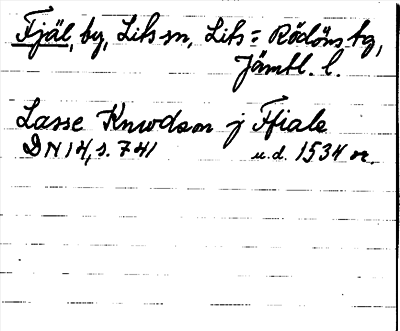 Fjäl, by, Lits sn, Lits- = Rödöns tg,
Jämtl. l.
Lasse Knwdson j Ffiale
DN 14, s. 741 u.d. 1534 or.